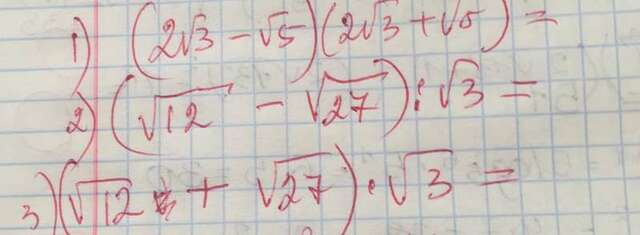 1) (2√3 − √5)(2√3 + √5) =
2) (√12 − √27) : √3 =
3) (√12 + √27) · √3 =